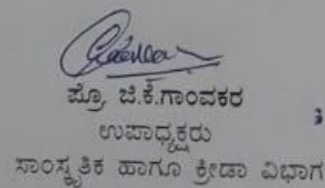 ಪ್ರೊ. ಜಿ.ಕೆ.ಗಾಂವಕರ
ಉಪಾಧ್ಯಕ್ಷರು
ಸಾಂಸ್ಕೃತಿಕ ಹಾಗೂ ಕ್ರೀಡಾ ವಿಭಾಗ